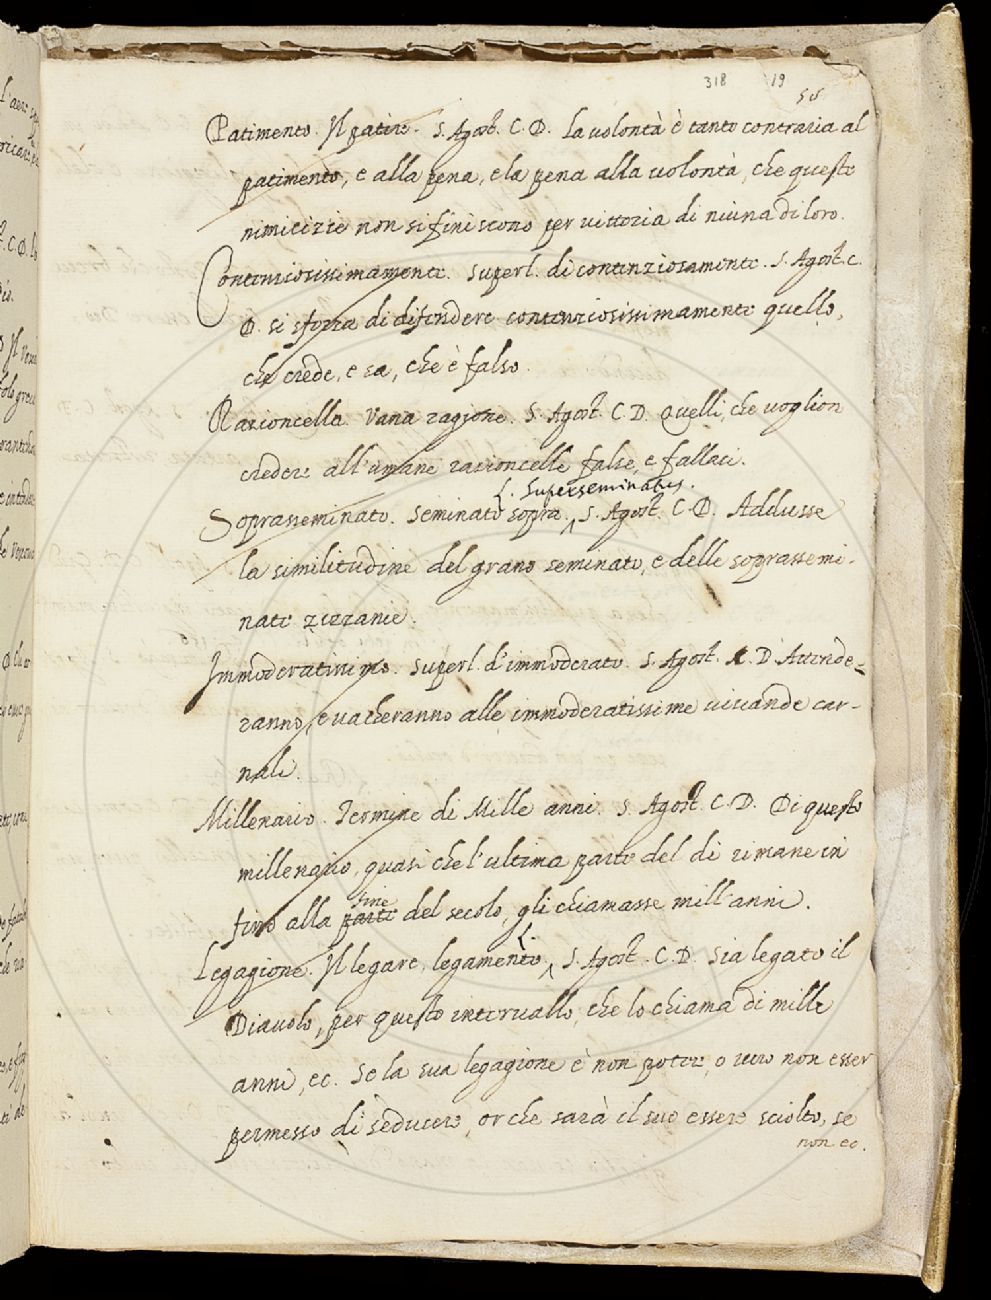 318 19
58
Patimento. Il patire. S. Agost. C. D. La volontà è tanto contraria al
patimento, e alla pena, e la pena alla volontà, che queste
nimicizie non si finiscono per vittoria di niuna di loro.
Contenziosissimamente. Superl. di contenziosamente. S. Agost. C.
D. si sforza di difendere contenziosissimamente quello,
che crede, e sa, che è falso.
Ragioncella. Vana ragione. S. Agost. C. D. Quelli, che voglion
credere all'umane ragioncelle false, e fallaci.
L. Superseminatus.
Soprasseminato. Seminato sopra. S. Agost. C. D. Addusse
la similitudine del grano seminato, e delle soprassemi-
nate zizzanie.
Immoderatissimo. Superl. d'immoderato. S. Agost. C. D. Attende-
ranno, e vacheranno alle immoderatissime vivande car-
nali.
Millenario. Termine di Mille anni. S. Agost. C. D. Di questo
millenario, quasi che l'ultima parte del dì rimane in
fine
fino alla parte del secolo, gli chiamasse mill'anni.
L.
Legagione. Il legare, legamento. S. Agost. C. D. Sia legato il
Diavolo, per questo intervallo, che lo chiama di mille
anni, ec. Se la sua legagione è non poter, o vero non esser
permesso di seducere, or che sarà il suo essere sciolto, se
non ec.